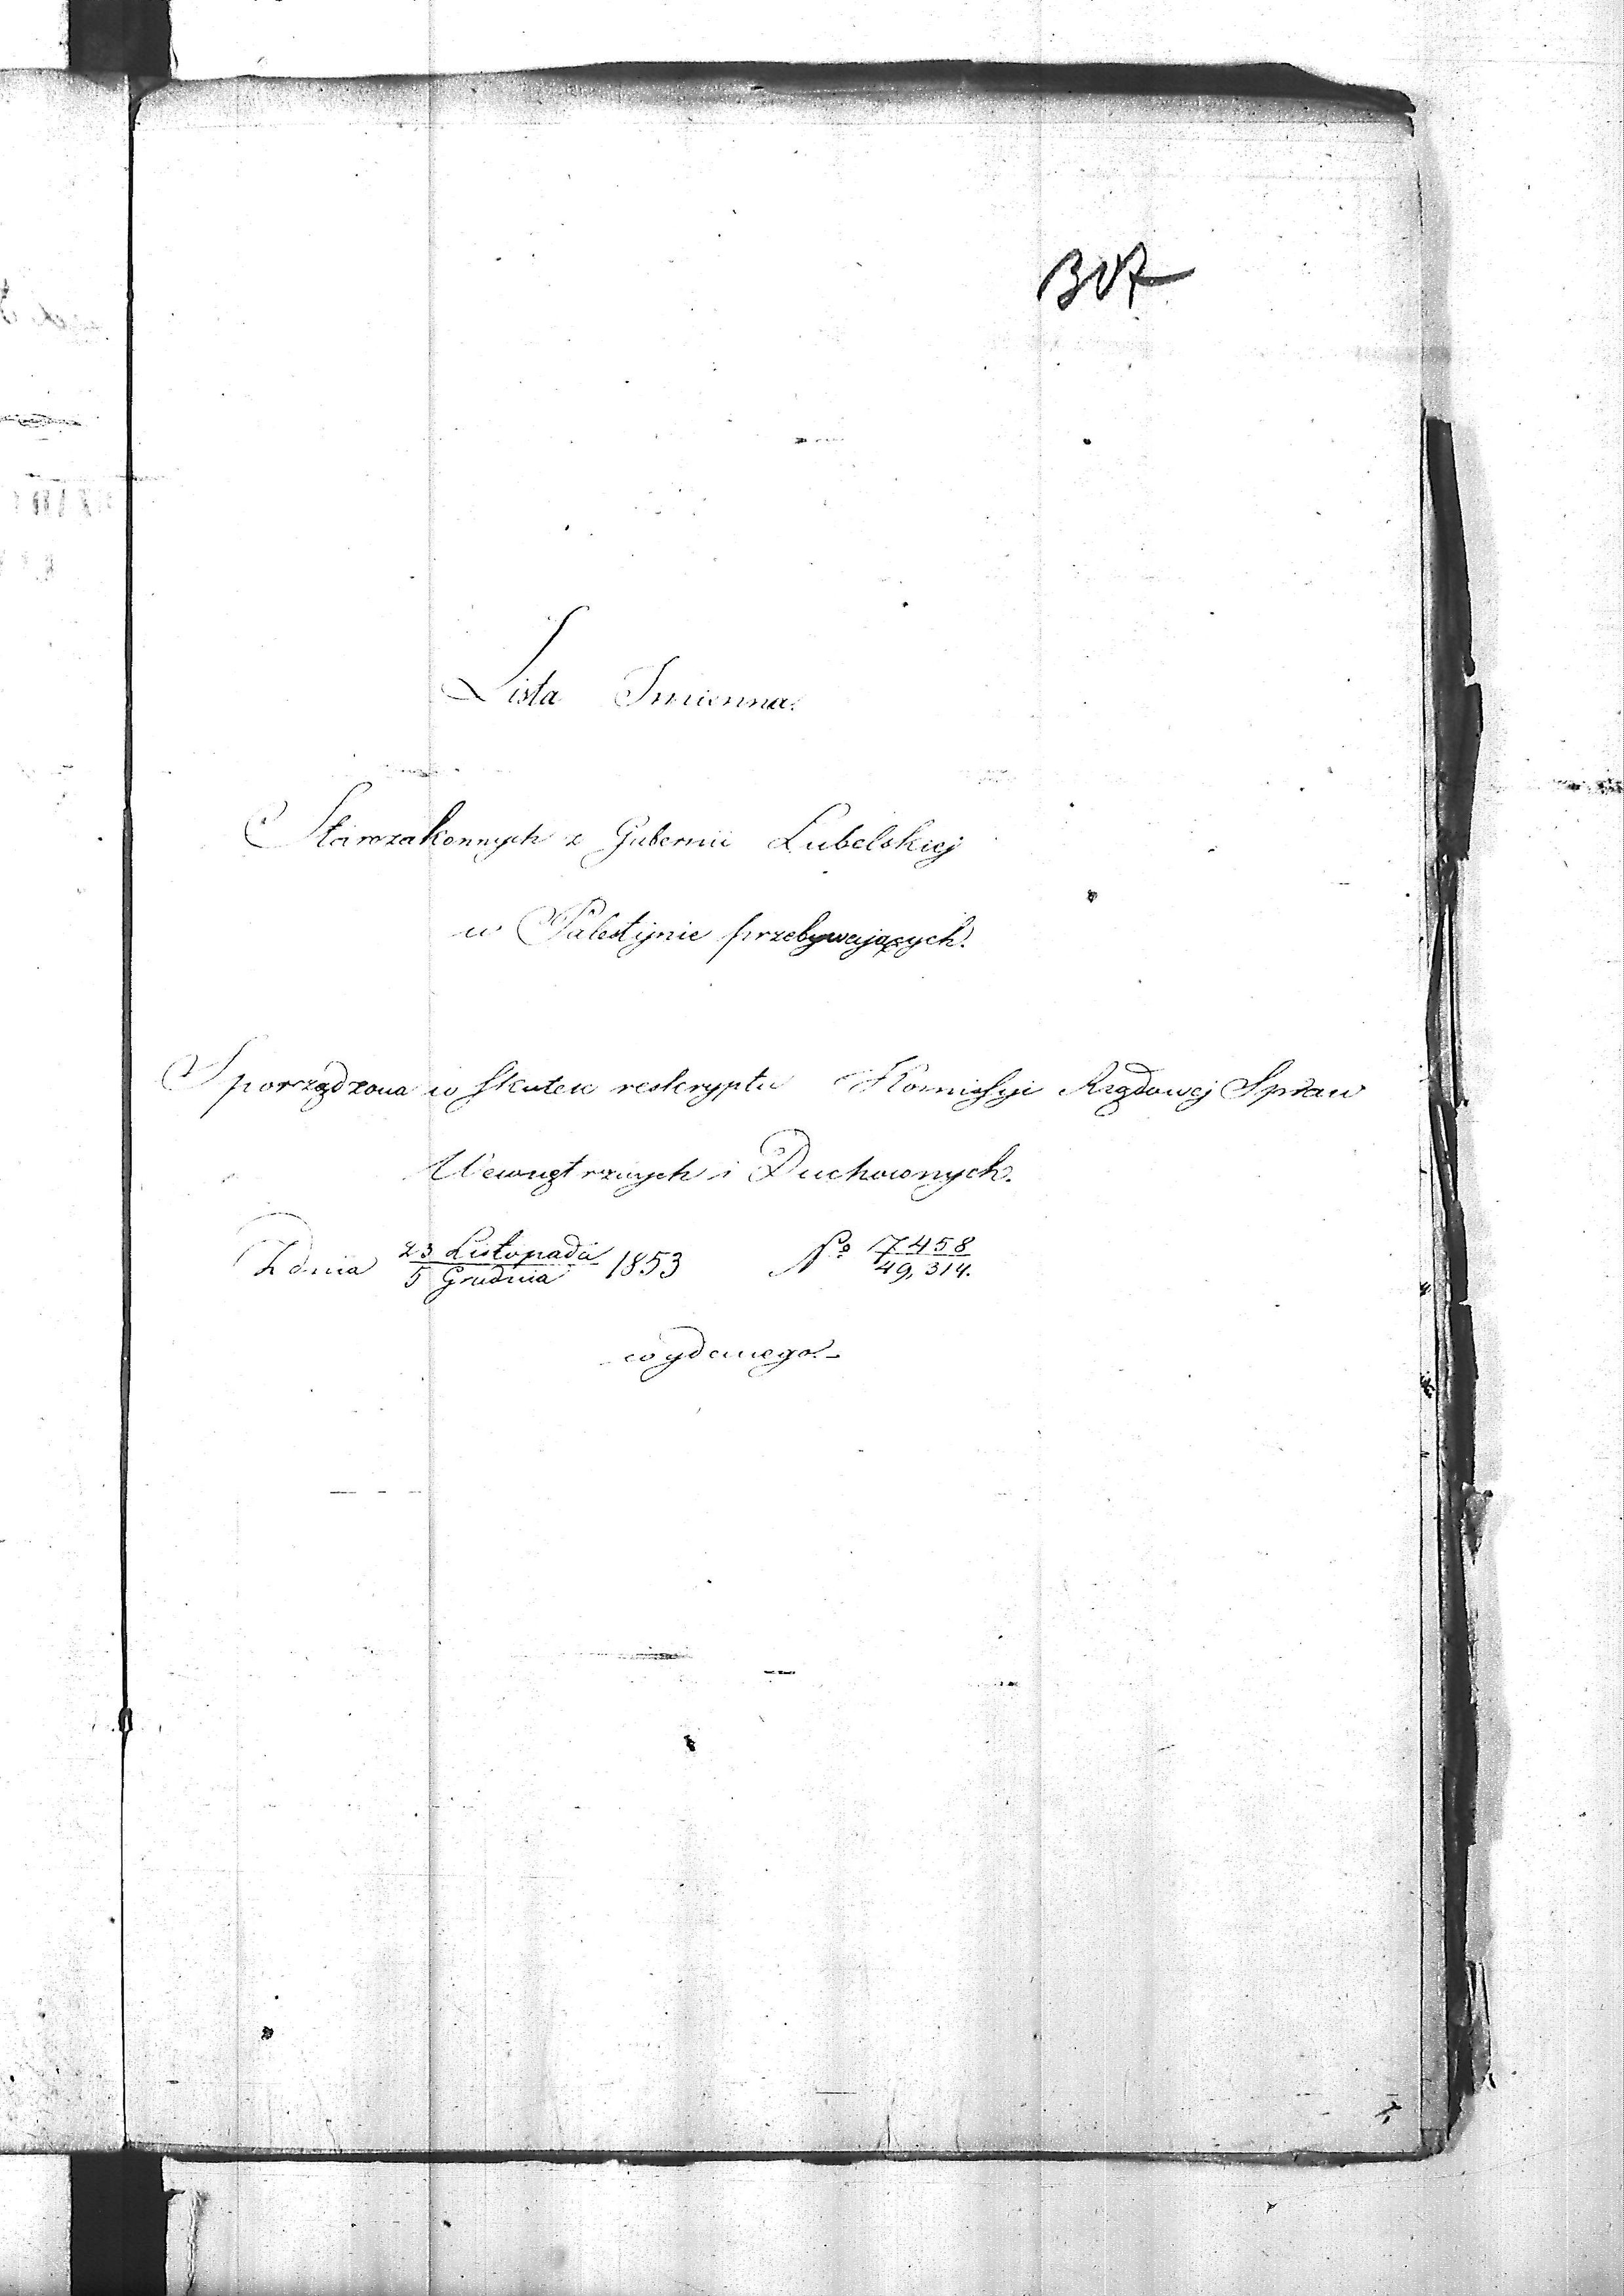 307
Lista Imienna.
Starozakonnych z Gubernii Lubelskiej
w Palestynie przebywających.
Sporządzona w skutek reskryptu Komissyi Rządowej Spraw
Wewnętrznych i Duchownych.
Z dnia 23 Listopada / 5 Grudnia 1853 No 7458 / 49,314.
wydanego.-